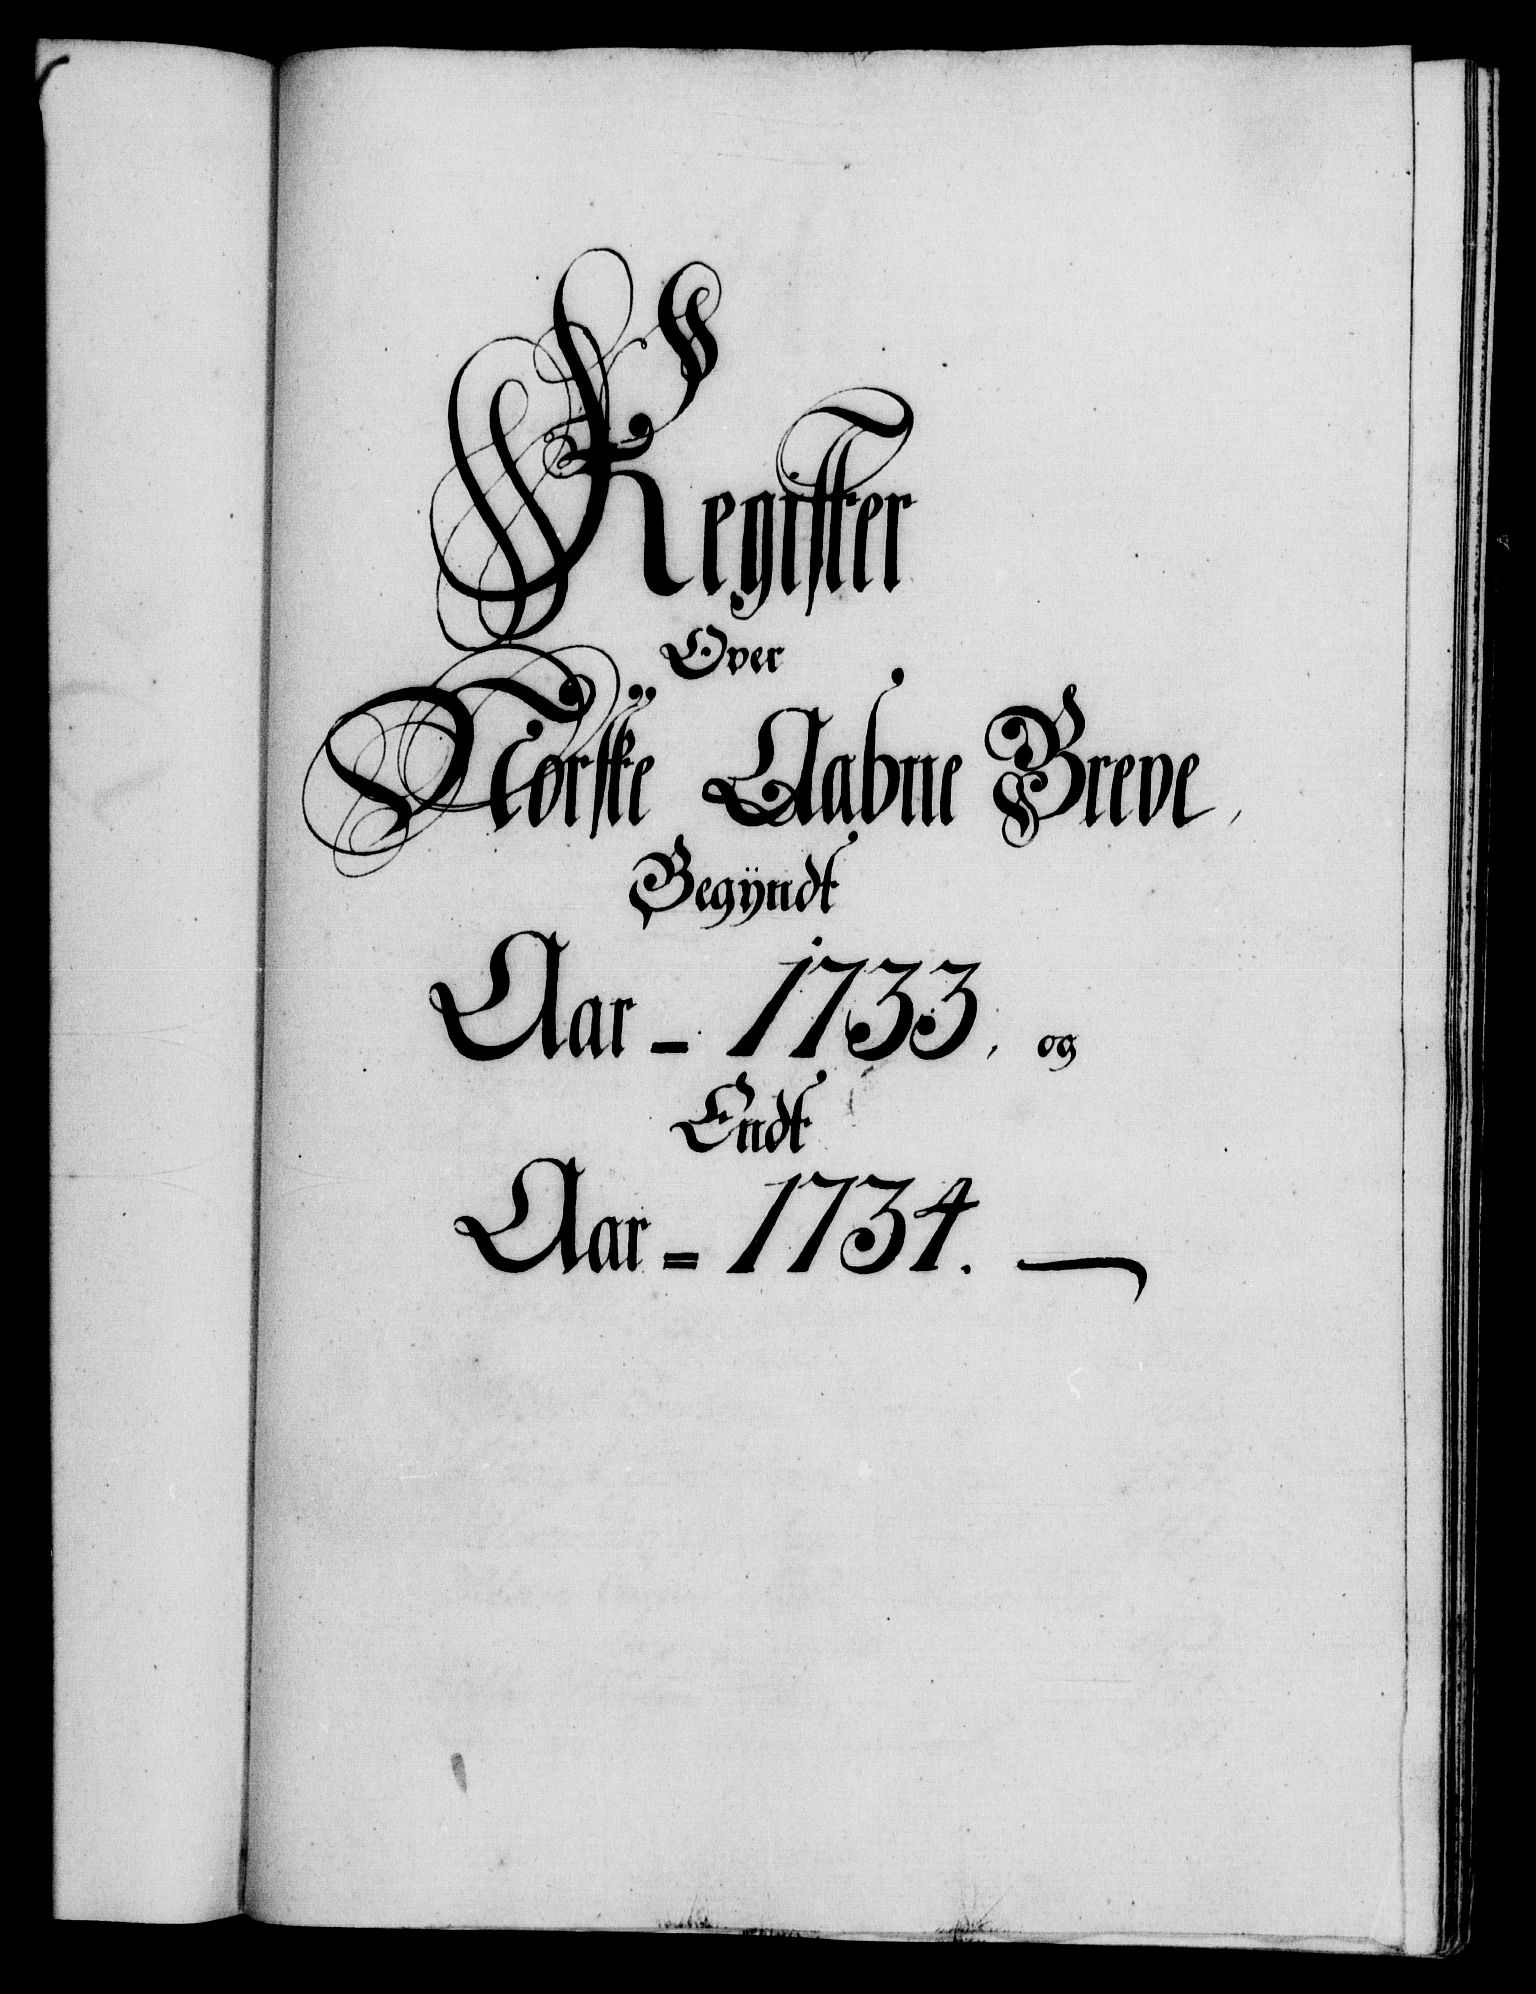 Register
Over
Norske Aabne Breve,
Begÿndt
Aar - 1733, og
Endt
Aar = 1734.